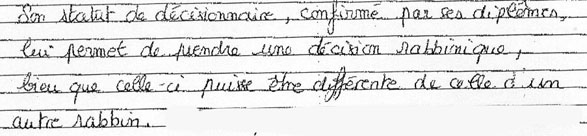 Son statut de décisionnaire, confirmé par ses diplômes,
lui permet de prendre une décision rabbinique,
bien que celle-ci puisse être différente de celle d'un
autre rabbin.